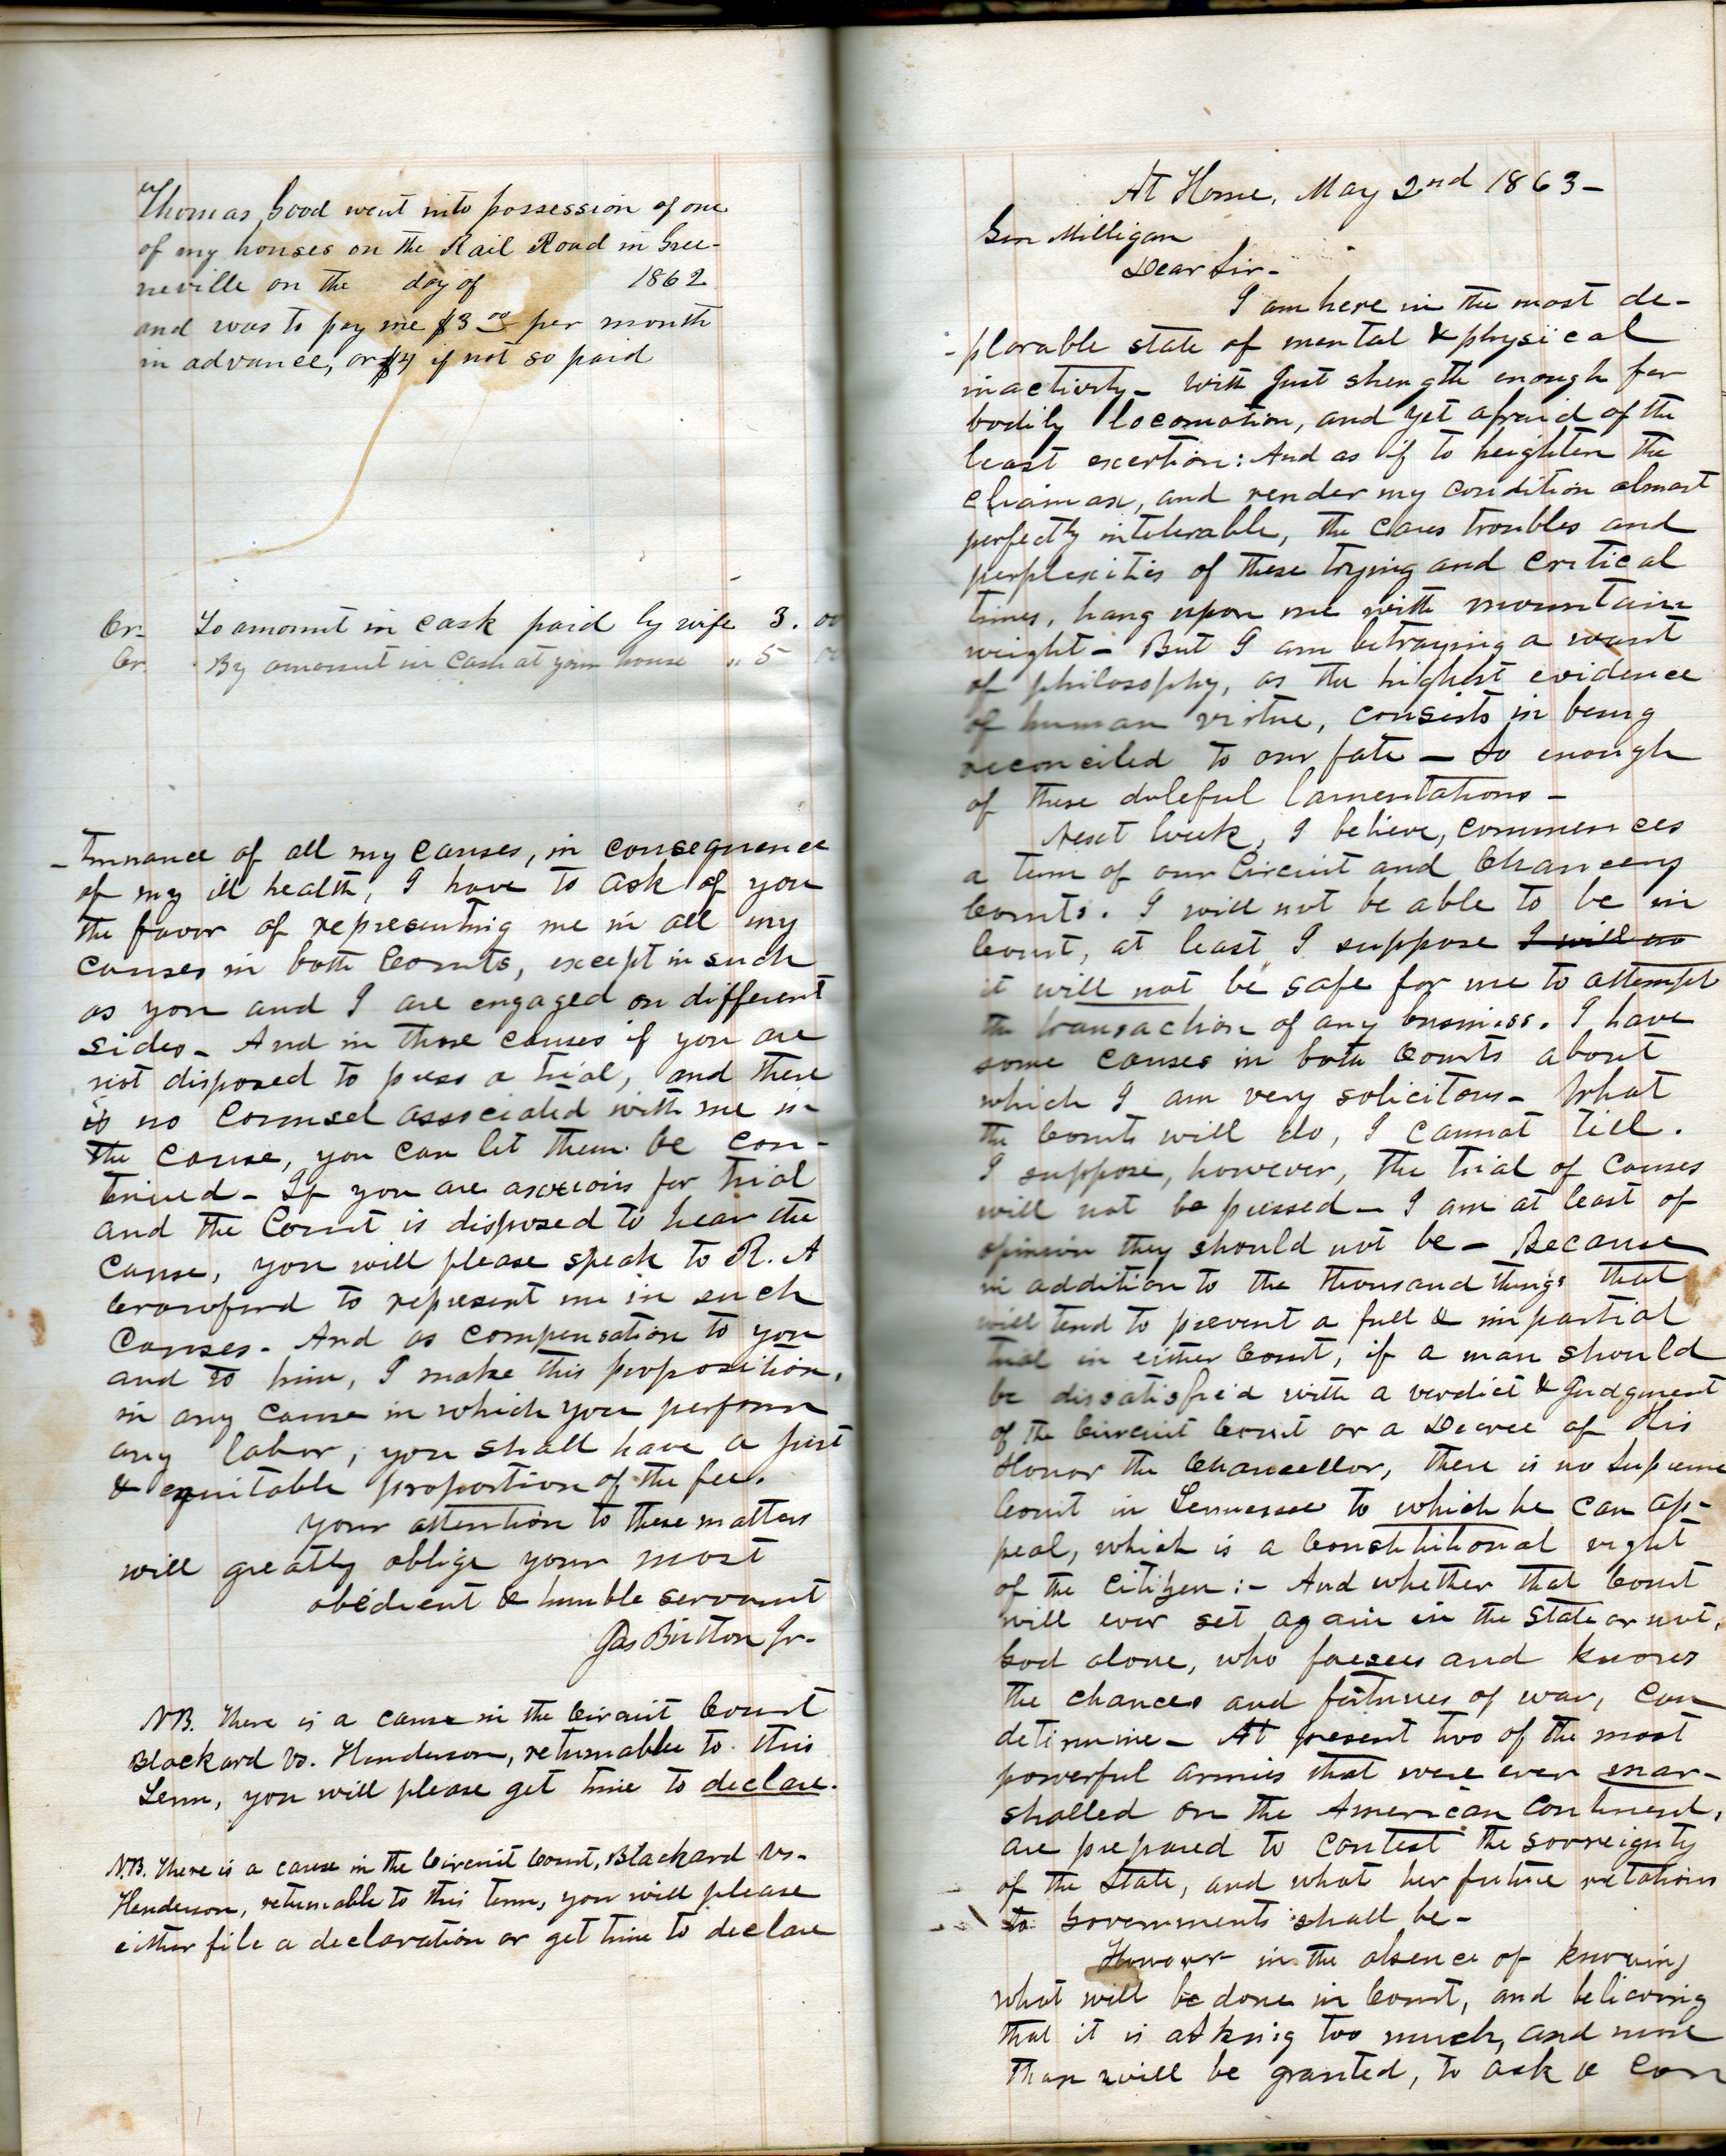 Thomas Good went into possession of one
of my houses on the Rail Road in Gree-
neville on the day of 1862
and was to pay me $3 00 per month
in advance, or $4 if not so paid
Cr- To amount in cash paid by wife 3. 00
Cr. By amount in Cash at your house " 5 00
-tinuance of all my causes, in consequence
of my ill health, I have to ask of you
the favor of representing me in all my
causes in both Courts, except in such
as you and I are engaged on different
sides- And in those causes if you are
not disposed to press a trial, and there
is no Counsel associated with me in
the cause, you can let them be con-
tinued- If you are anxious for trial
and the Court is disposed to hear the
cause, you will please speak to R. A
Crawford to represent me in such
Causes- And as compensation to you
and to him, I make this proposition,
in any cause in which you perform
any labor, you shall have a just
& equitable proportion of the fee.
your attention to these matters
will greatly oblige your most
obedient & humble servant
Jas Britton Jr-
NB. There is a cause in the Circuit Court
Blackard vs. Henderson, returnable to this
Term, you will please get time to declare.
N.B. There is a cause in the Circuit Court, Blackard vs-
Henderson, returnable to this term, you will please
either file a declaration or get time to declare
At Home, May 2nd 1863-
Sam Milligan
Dear Sir-
I am here in the most de-
-plorable state of mental & physical
inactivity- With just strength enough for
bodily locomotion, and yet afraid of the
least exertion: And as if to heighten the
climax, and render my condition almost
perfectly intolerable, the cares troubles and
perplexities of these trying and critical
times, hang upon me with mountain
weight- But I am betraying a want
of philosophy, as the highest evidence
of human virtue, consists in being
reconciled to our fate- So enough
of these doleful lamentations-
Next week, I believe, commences
a term of our Circuit and Chancery
Courts. I will not be able to be in
Court, at least I suppose I will no
it will not be safe for me to attempt
the transaction of any business. I have
some causes in both Courts about
which I am very solicitous- What
the Courts will do, I cannot tell.
I suppose, however, the trial of causes
will not be pressed- I am at least of
opinion they should not be- Because
in addition to the thousand things that
will tend to prevent a full & impartial
trial in either Court, if a man should
be dissatisfied with a verdict & Judgment
of the Circuit Court or a Decree of His
Honor the Chancellor, there is no Supreme
Court in Tennessee to which he can ap-
peal, which is a Constitutional right
of the citizen:- And whether that Court
will ever set again in the State or not,
God alone, who foresees and knows
the chances and fortunes of war, can
determine- At present two of the most
powerful armies that were ever mar-
shalled on the American Continent,
are prepared to contest the sovreignty
of the State, and what her future relations
to Governments shall be-
However in the absence of knowing
what will be done in Court, and believing
that it is asking too much, and more
than will be granted, to ask a con